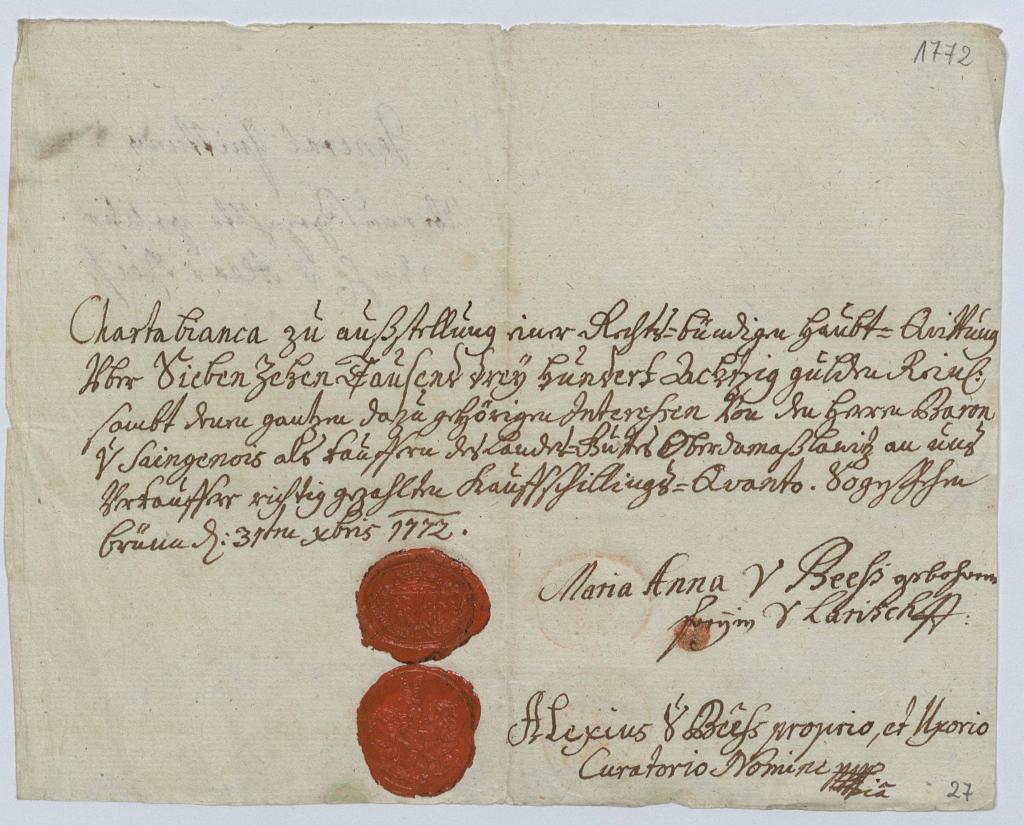 1772
Charta bianca zu außstellung einer Rechts=bündigen Haubt=Qvittung
Über Sieben Zehen Tausend drey hundert Achtzig gulden Reinl:
sambt denen gantzen dazu gehörigen Interessen von den Herren Baron
V Saingenois als Kauffern des Landes=Guttes Oberdomaßlawitz an uns
Verkauffere richtig gezahlten Kauffschillings=Qvanto. So geschehen
brünn d: 31ten xbris 1772.
Maria Anna V Beeß gebohrne
freyin V Larisch
Alexius V Beeß proprio, et Uxorio
Curatorio Nomine
27